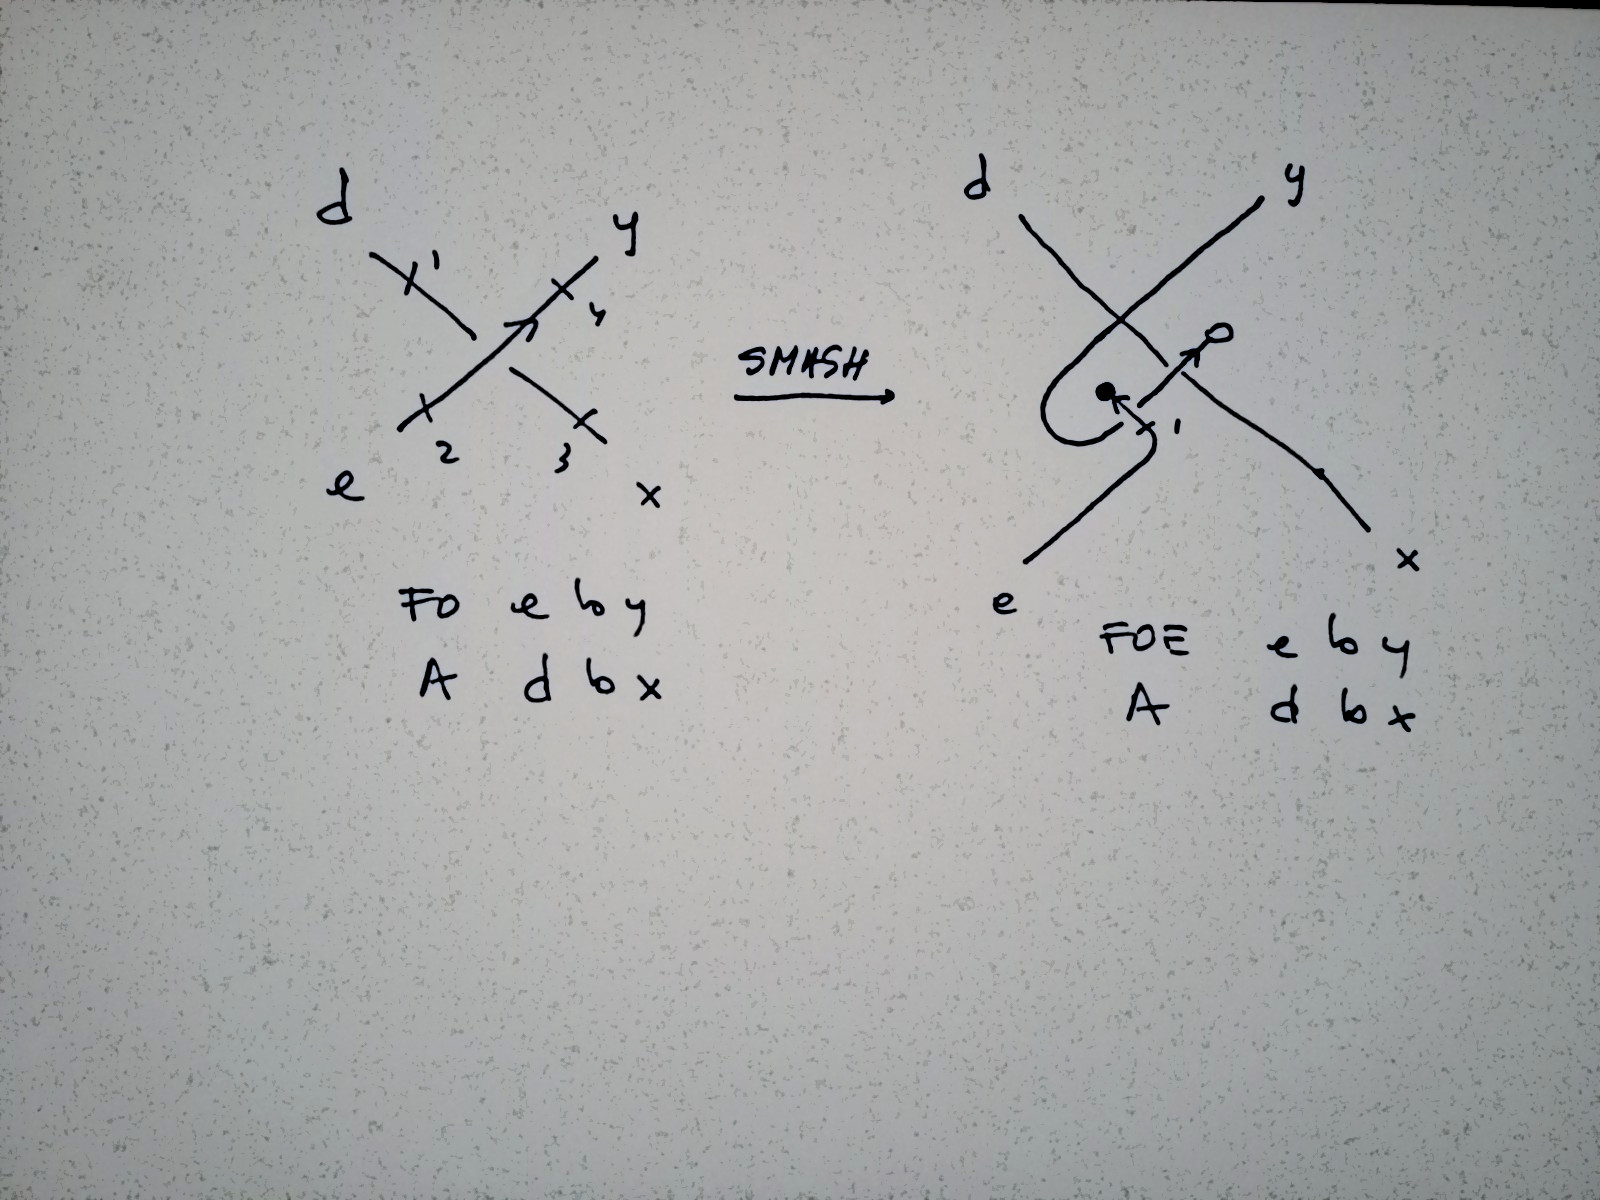 d
y
1
4
e
2
3
x
FO e b y
A d b x
SMASH
d
y
1
e
x
FOE e b y
A d b x